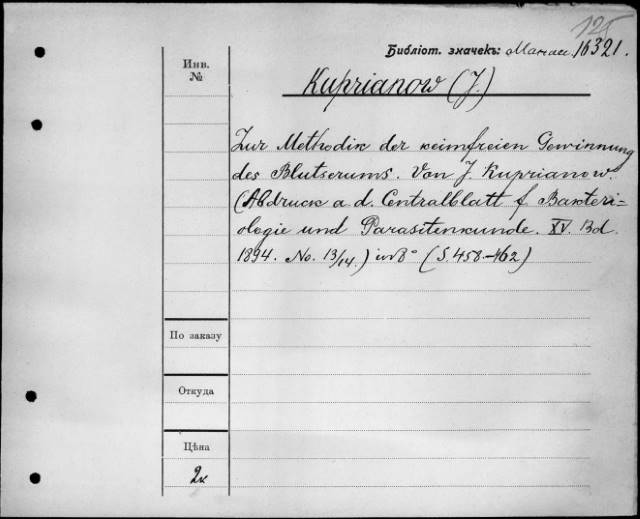 125
Библіот. значекъ: Магаз. 16321.
Инв.
№
Kuprianow (J.)
Zur Methodik der keimfreien Gewinnung
des Blutserums. Von J. Kuprianow.
(Abdruck a. d. Centralblatt f. Bakteri=
ologie und Parasitenkunde. XV. Bd.
1894. No. 13/14.) in 8° (S. 458-462)
По заказу
Откуда
Цѣна
2к